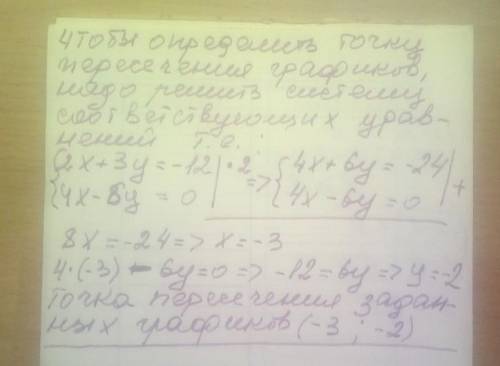 Чтобы определить точку
пересечения графиков,
надо решить систему
соответствующих урав-
нений т.е.:
{2x+3y=-12|·2 => {4x+6y=-24|+
{4x-6y=0 {4x-6y=0
8x=-24=>x=-3
4·(-3)-6y=0=>-12=6y=>y=-2
Точка пересечения задан-
ных графиков (-3 ; -2)